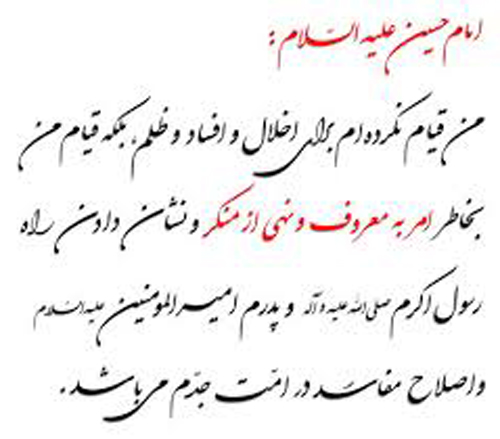 امام حسین علیه السّلام :
من قیام نکرده ام برای اخلال و افساد و ظلم، بلکه قیام من
بخاطر امر به معروف و نهی از منکر و نشان دادن راه
رسول اکرم صلی الله علیه و آله و پدرم امیرالمومنین علیه السلام
و اصلاح مفاسد در امّت جدّم می باشد.